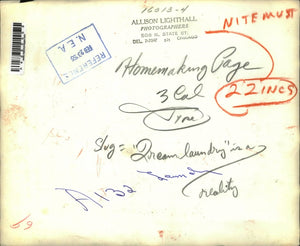 76213-4
ALLISON LIGHTHALL
PHOTOGRAPHERS
508 N. STATE ST.
CHICAGO
NITE MUST
REFERENCE
N.E.A.
Homemaking Page
3 Col
2 ZINCS
Slug = "Dream laundry" is a
reality
A132